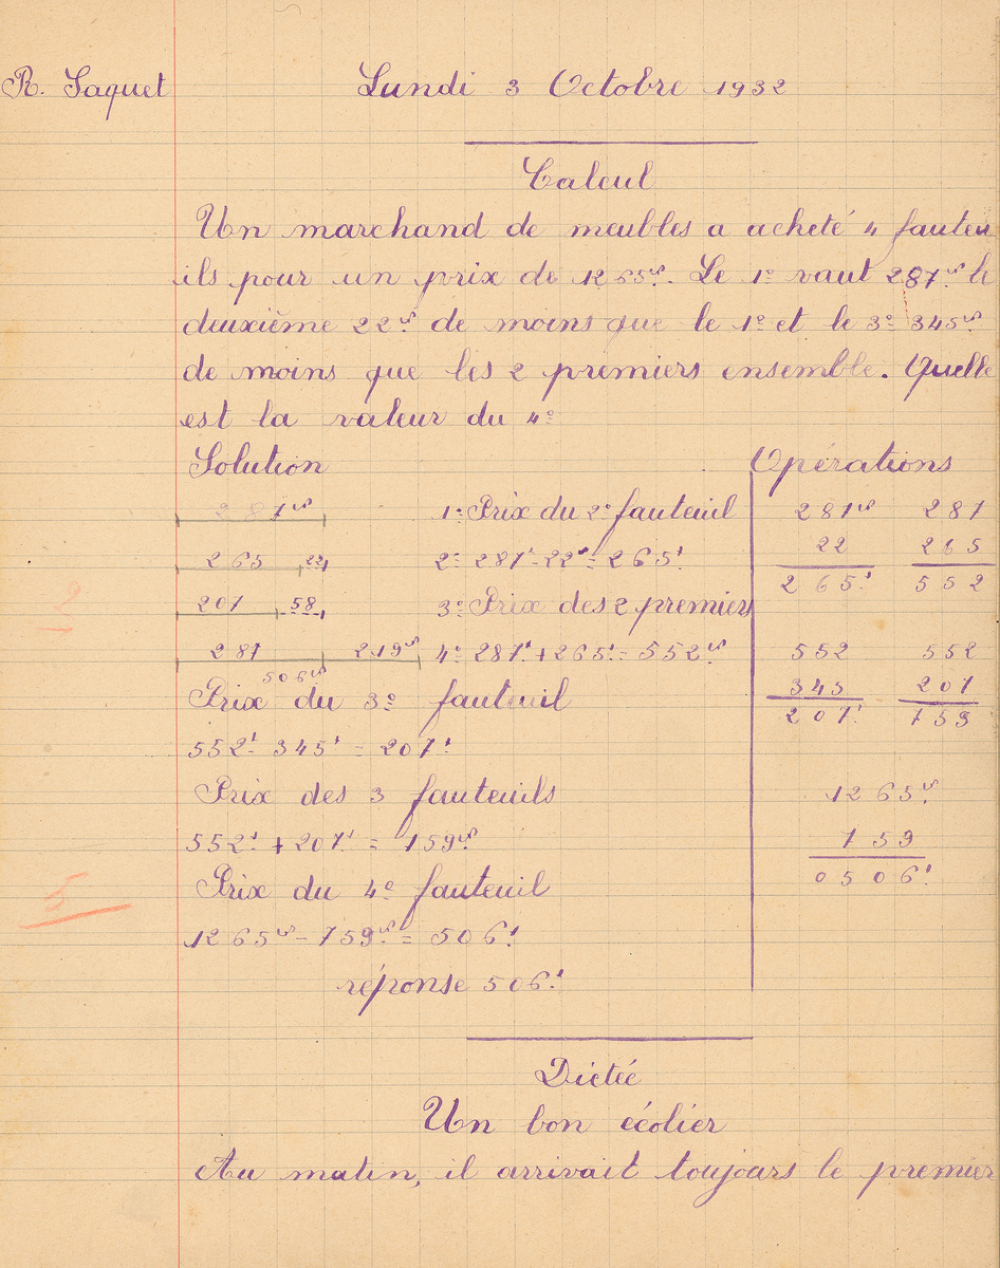 R. Saquet
Lundi 3 Octobre 1932
Calcul
Un marchand de meubles a acheté 4 fauteu
ils pour un prix de 1265f. Le 1e vaut 287f le
deuxième 22f de moins que le 1e et le 3e 345f
de moins que les 2 premiers ensemble. Quelle
est la valeur du 4e
Solution
Opérations
287f 1e Prix du 2e fauteuil
265 22f 2e 287f - 22f = 265f
207 58 3e Prix des 2 premiers
287 219f 4e 287f + 265f = 552f
506f
Prix du 3e fauteuil
552f - 345f = 207f
Prix des 3 fauteuils
552f + 207f = 759f
Prix du 4e fauteuil
1265f - 759f = 506f
réponse 506f
287f 287
22 265
265f 552
552 552
345 207
207f 759
1265f
759
0506f
2
5
Dictée
Un bon écolier
Au matin, il arrivait toujours le premier